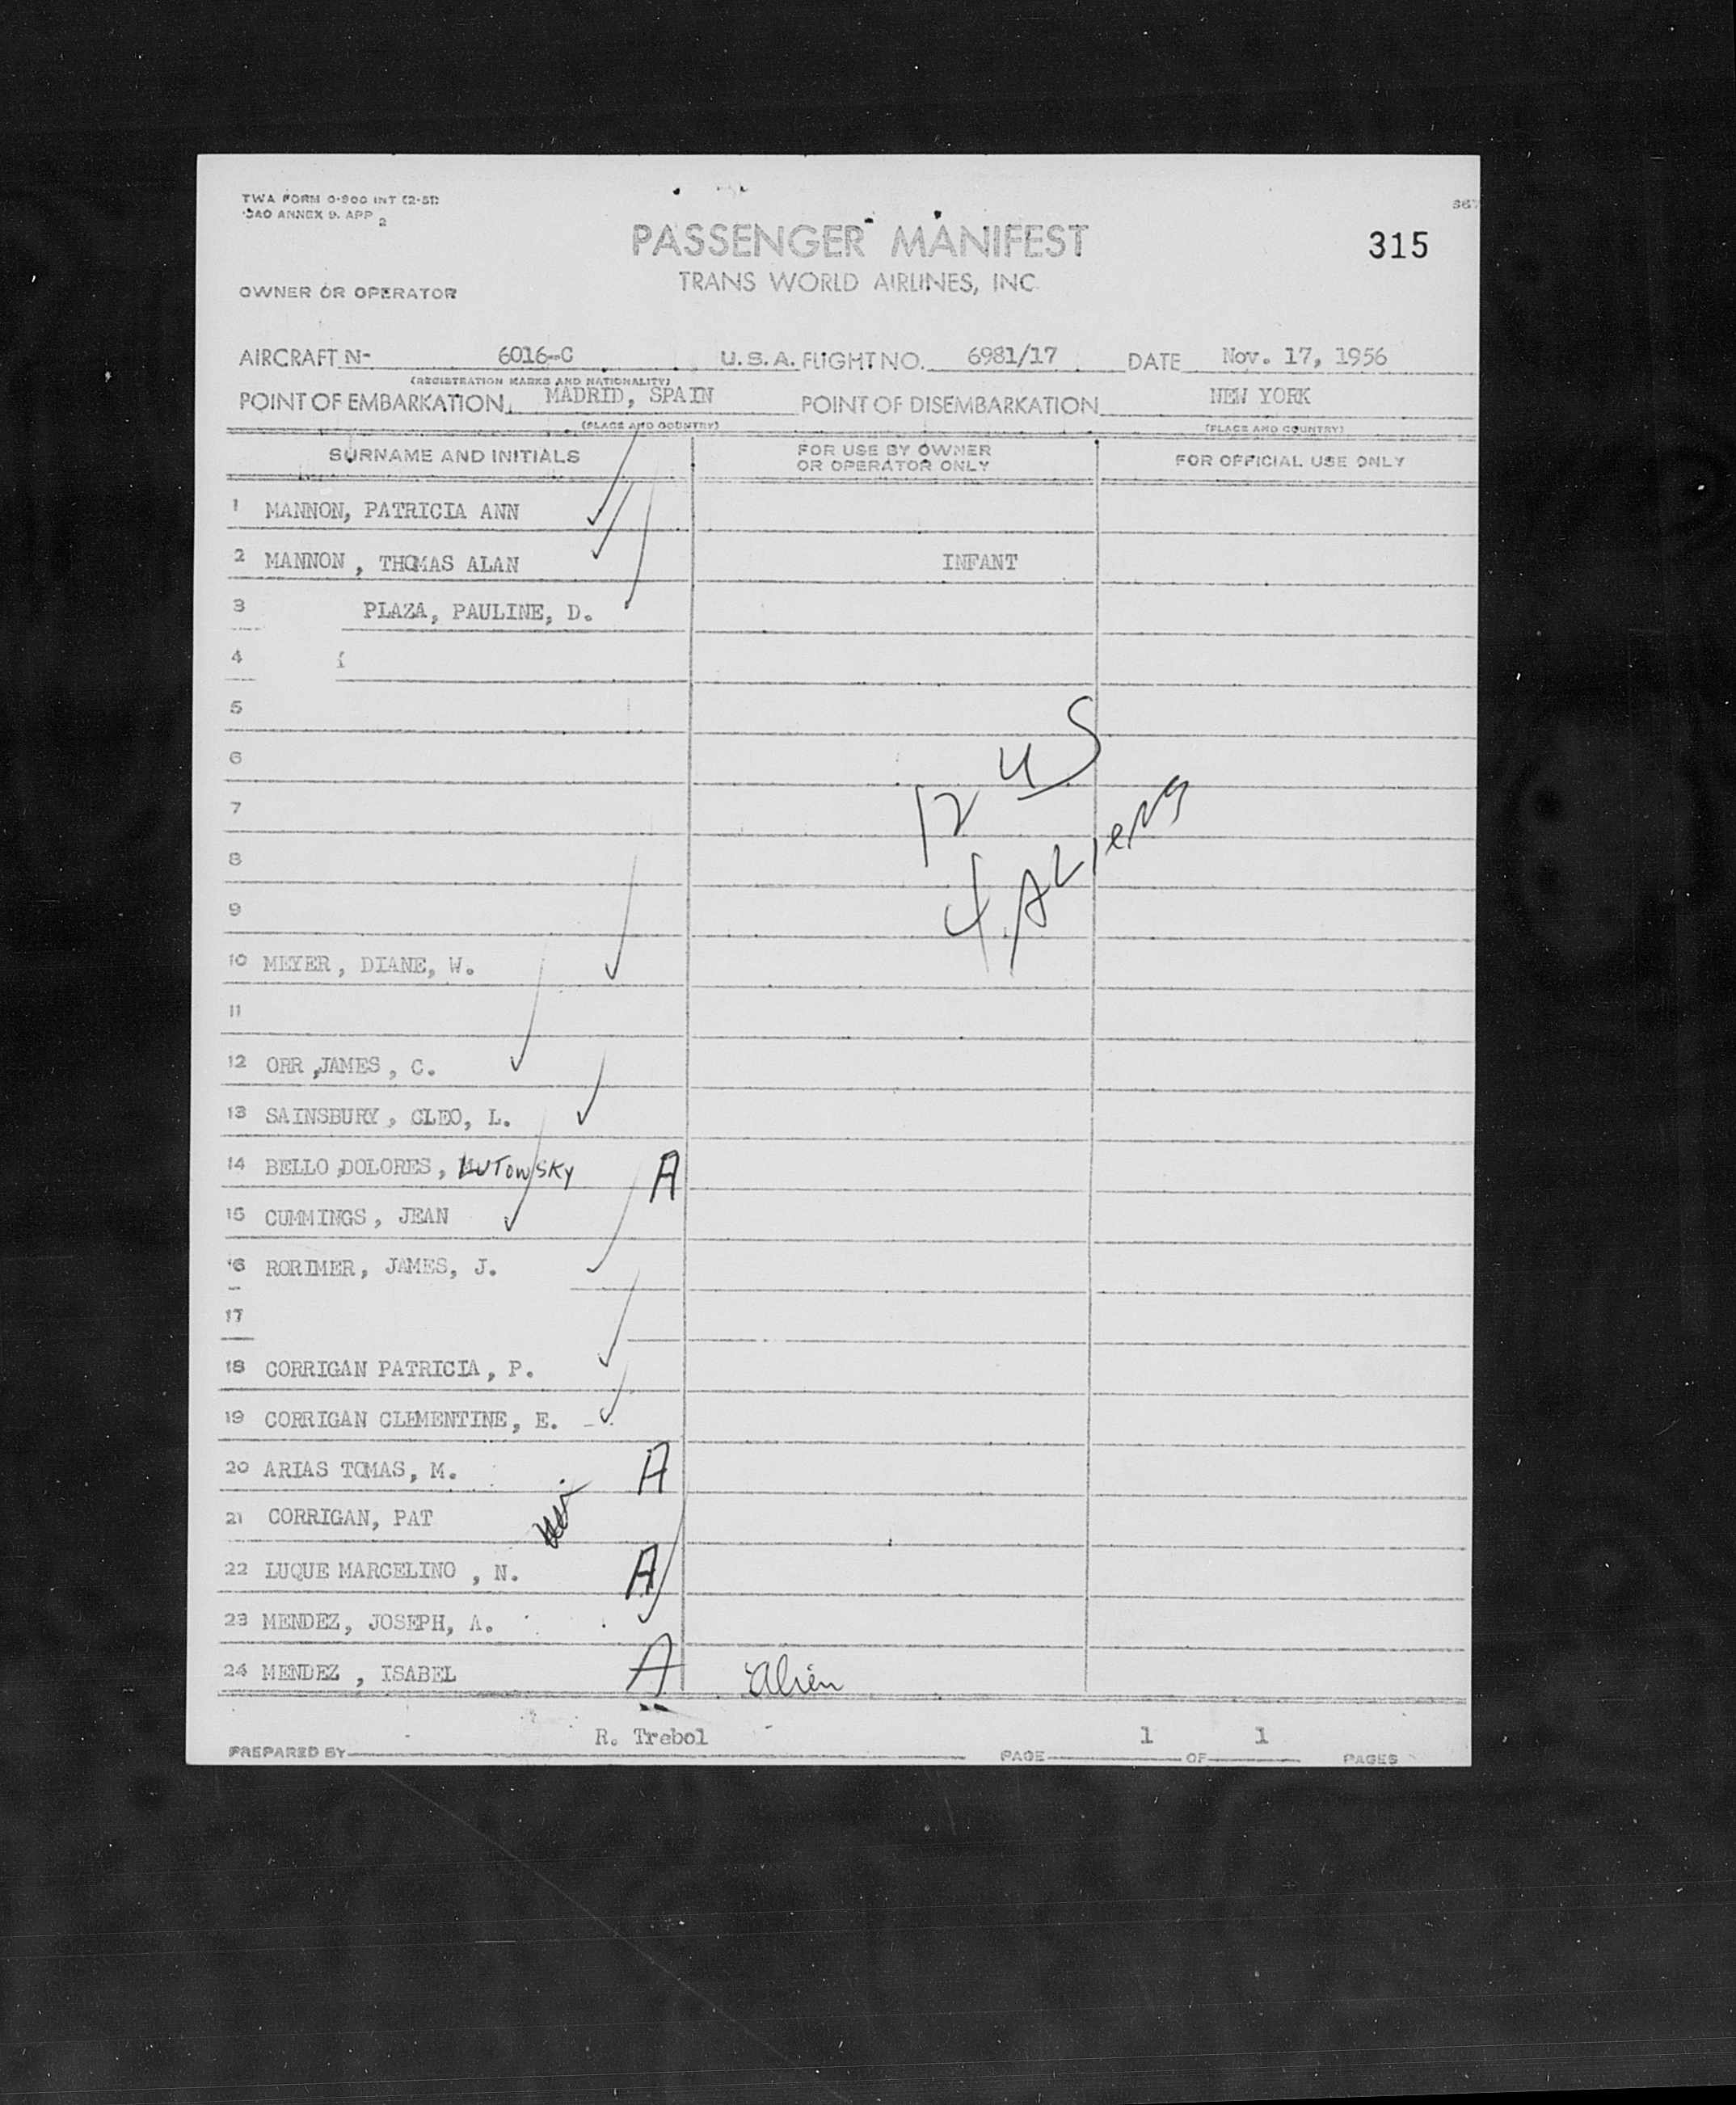 TWA FORM 0-900 INT (2-51)
ICAO ANNEX 9. APP 2
PASSENGER MANIFEST
315
TRANS WORLD AIRLINES, INC.
OWNER OR OPERATOR
AIRCRAFT N- 6016-C U.S.A. FLIGHT NO. 6981/17 DATE Nov. 17, 1956
(REGISTRATION MARKS AND NATIONALITY)
POINT OF EMBARKATION MADRID, SPAIN POINT OF DISEMBARKATION NEW YORK
(PLACE AND COUNTRY) (PLACE AND COUNTRY)
SURNAME AND INITIALS FOR USE BY OWNER OR OPERATOR ONLY FOR OFFICIAL USE ONLY
1 MANNON, PATRICIA ANN
2 MANNON , THOMAS ALAN INFANT
3 PLAZA, PAULINE, D.
4
5
6
12 US
7
8
4 ALIENS
9
10 MEYER, DIANE, W.
11
12 ORR ,JAMES , C.
13 SAINSBURY , CLEO, L.
14 BELLO ,DOLORES , LUTOWSKY A
15 CUMMINGS , JEAN
16 RORIMER, JAMES, J.
17
18 CORRIGAN PATRICIA , P.
19 CORRIGAN CLEMENTINE , E.
20 ARIAS TOMAS, M. A
21 CORRIGAN, PAT
22 LUQUE MARCELINO , N. A
23 MENDEZ, JOSEPH, A.
24 MENDEZ , ISABEL A alien
PREPARED BY R. Trebol PAGE 1 OF 1 PAGES